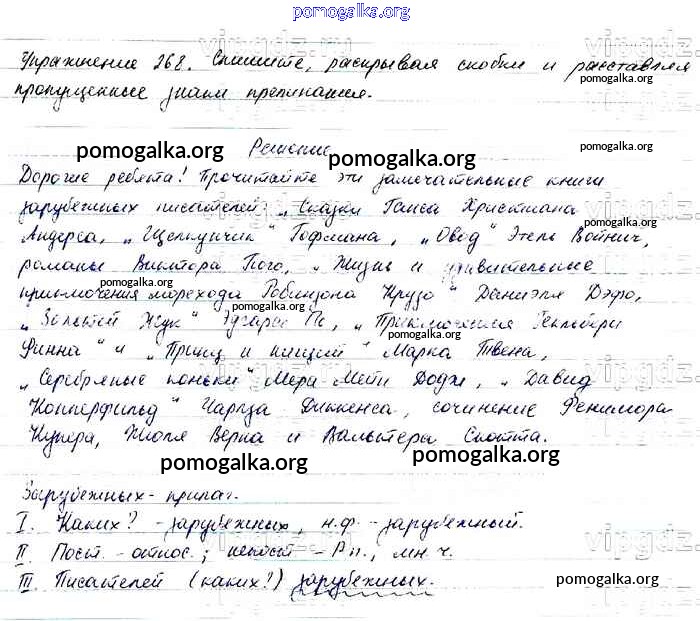 pomogalka.org
Упражнение 268. Спишите, раскрывая скобки и расставляя
pomogalka.org
пропущенные знаки препинания.
pomogalka.org Решение pomogalka.org
pomogalka.org
Дорогие ребята! Прочитайте эти замечательные книги
зарубежных писателей: „Сказки Ганса Христиана
pomogalka.org
Андерса, „Щелкунчик“ Гофмана, „Овод“ Этель Войнич,
романы Виктора Гюго, „Жизнь и удивительные
pomogalka.org
приключения морехода Робинзона Крузо“ Даниэля Дэфо,
pomogalka.org
„Золотой Жук“ Эдгара По, „Приключения Гекльбери
pomogalka.org
Финна“ и „Принц и нищий“ Марка Твена,
„Серебряные коньки“ Мери Мейп Додж, „Давид
Копперфильд“ Чарлза Диккенса, сочинение Фенимора
Купера, Жюля Верна и Вальтера Скотта.
pomogalka.org pomogalka.org
Зарубежных - прилаг.
I. Каких? - зарубежных, н.ф. - зарубежный.
II. Пост. - относ.; непост - Р.п., мн.ч.
III. Писателей (каких?) зарубежных.
pomogalka.org
vipgdz.ru